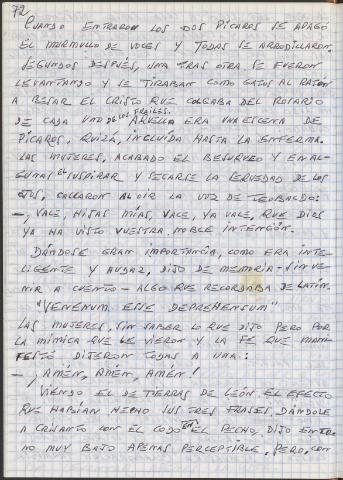 72
CUANDO ENTRARON LOS DOS PÍCAROS SE APAGÓ
EL MURMULLO DE VOCES Y TODAS SE ARRODILLARON.
SEGUNDOS DESPUÉS, UNA TRAS OTRA SE FUERON
LEVANTANDO Y SE TIRABAN COMO GATOS AL RATÓN
A BESAR EL CRISTO QUE COLGABA DEL ROSARIO
DE CADA UNO DE LOS FRAILES. AQUELLA ERA UNA ESCENA DE
PÍCAROS, QUIZÁ, INCLUÍDA HASTA LA ENFERMA.
LAS MUJERES, ACABADO EL BESUQUEO Y EN AL-
GUNAS EL SUSPIRAR Y SECARSE LA SEQUEDAD DE LOS
OJOS, CALLARON AL OIR LA VOZ DE TEOBALDO:
—, VALE, HIJAS MÍAS, VALE, YA VALE, QUE DIOS
YA HA VISTO VUESTRA NOBLE INTENCIÓN.
DÁNDOSE GRAN IMPORTANCIA, COMO ERA INTE-
LIGENTE Y AUDAZ, DIJO DE MEMORIA - SIN VE-
NIR A CUENTO - ALGO QUE RECORDABA DE LATÍN.
"VENENUM ESSE DEPREHENSUM"
LAS MUJERES, SIN SABER LO QUE DIJO PERO POR
LA MÍMICA QUE LE VIERON Y LA FE QUE MANI-
FESTÓ DIJERON TODAS A UNA:
—, ¡AMÉN, AMÉN, AMÉN!
VIENDO EL DE TIERRAS DE LEÓN EL EFECTO
QUE HABÍAN HECHO SUS TRES FRASES, DÁNDOLE
A CRISANTO CON EL CODO EN EL PECHO, DIJO EN TO-
NO MUY BAJO APENAS PERCEPTIBLE, PERO, CON